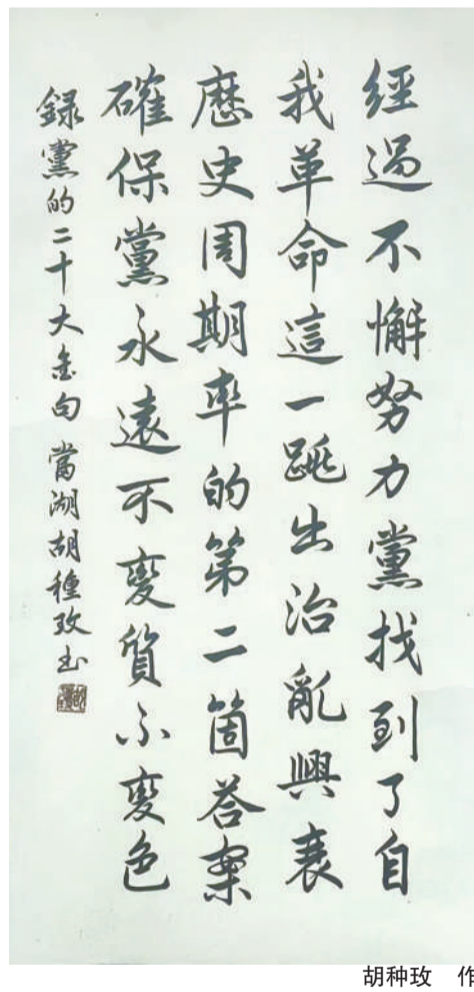 經過不懈努力黨找到了自
我革命這一跳出治亂興衰
歷史周期率的第二箇答案
確保黨永遠不變質不變色
錄黨的二十大金句 當湖胡種玫書
胡种玫 作